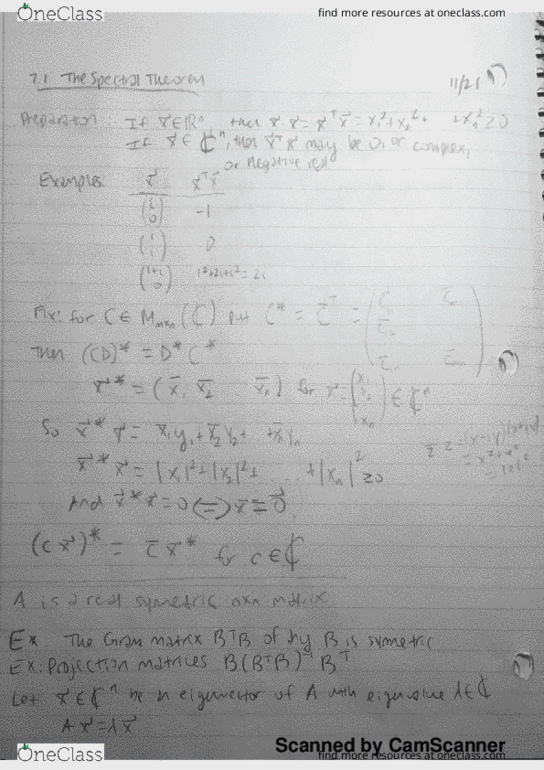 OneClass
find more resources at oneclass.com
7.1 The Spectral Theorem 11/21
Preparation: If x⃗ ∈ ℝⁿ, then x⃗·x⃗ = x⃗ᵀx⃗ = x₁²+x₂²+ +xₙ² ≥ 0
If x⃗ ∈ ℂⁿ, then x⃗ᵀx⃗ may be 0, or complex,
or negative real
Examples: x⃗ x⃗ᵀx⃗
(i 0) -1
(1 i) 0
(1+i 0) 1²+2i+i² = 2i
Fix: for C ∈ Mₘₓₙ(ℂ) put C* = C̄ᵀ =
Then (CD)* = D*C*
x⃗* = (x̄₁ x̄₂ x̄ₙ) for x⃗ = (x₁ x₂ xₙ) ∈ ℂⁿ
So x⃗*y⃗ = x̄₁y₁+x̄₂y₂+ +x̄ₙyₙ
x⃗*x⃗ = |x₁|²+|x₂|²+ ... +|xₙ|² ≥ 0
z̄z = (x-iy)(x+iy)
= x²+y²
= |z|²
And x⃗*x⃗ = 0 ⟺ x⃗ = 0⃗
(cx⃗)* = c̄ x⃗* for c ∈ ℂ
A is a real symetric nxn matrix
Ex The Gram matrix BᵀB of any B is symetric
Ex: Projection matrices B(BᵀB)⁻¹Bᵀ
Let x⃗ ∈ ℂⁿ be an eigenvector of A with eigenvalue λ ∈ ℂ
Ax⃗ = λx⃗
Scanned by CamScanner
OneClass
find more resources at oneclass.com